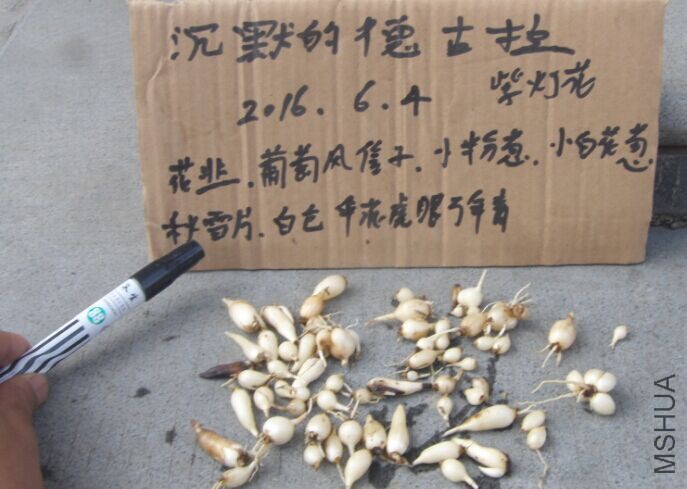 沉默的德古拉
紫灯花
2016. 6. 4
花韭. 葡萄风信子. 小粉葱. 小白花葱
秋雪片. 白色 平光虎眼万年青
MSHUA